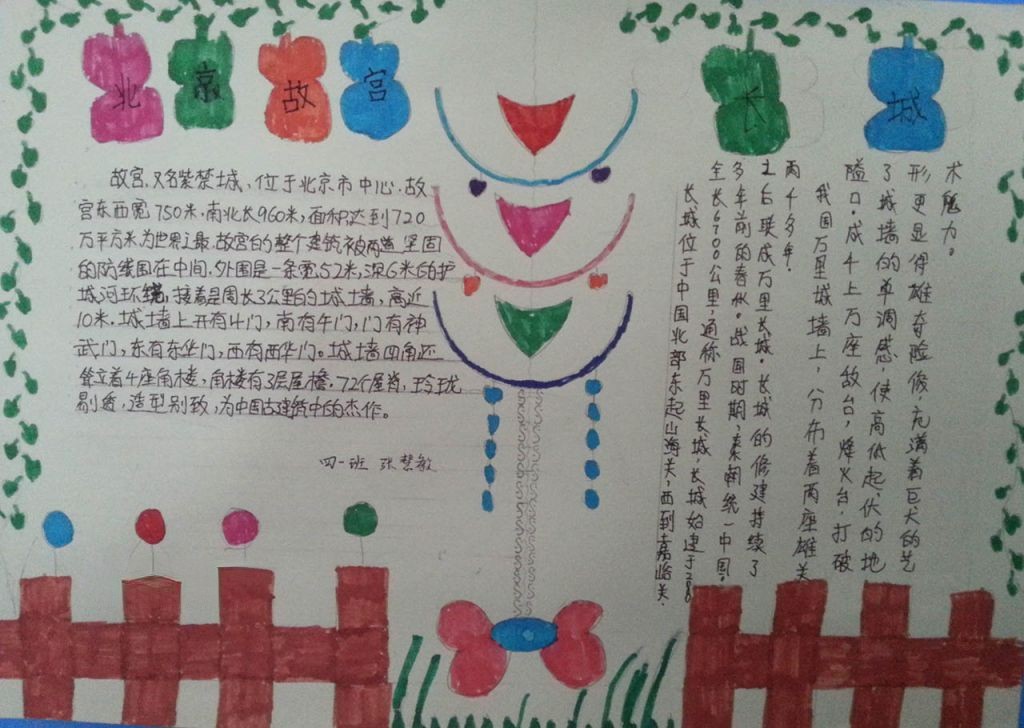 北京故宫
长城
故宫,又名紫禁城,位于北京市中心.故
宫东西宽750米.南北长960米,面积达到720
万平方米为世界之最.故宫的整个建筑被两道坚固
的防线围在中间.外围是一条宽52米,深6米的护
城河环绕,接着是周长3公里的城墙,高近
10米.城墙上开有4门,南有午门,门有神
武门,东有东华门,西有西华门。城墙四角还
耸立着4座角楼,角楼有3层屋檐.72个屋脊,玲珑
剔透,造型别致,为中国古建筑中的杰作。
四一班 张慧敏
长城位于中国北部东起山海关,西到嘉峪关.
全长6700公里,通称万里长城.长城始建于200
多年前的春秋.战国时期,秦朝统一中国.
之后联成万里长城.长城的修建持续了
两千多年.
我国万里城墙上,分布着两座雄关
隘口.成千上万座敌台,烽火台.打破
了城墙的单调感,使高低起伏的地
形更显得雄奇险俊,充满着巨大的艺
术魅力。